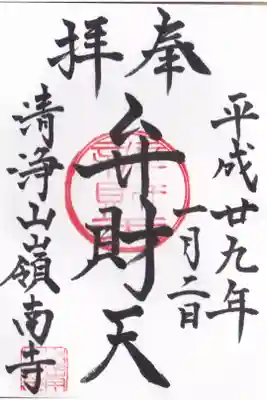 奉拝
平成廿九年
一月二日
弁財天
清浄山嶺南寺